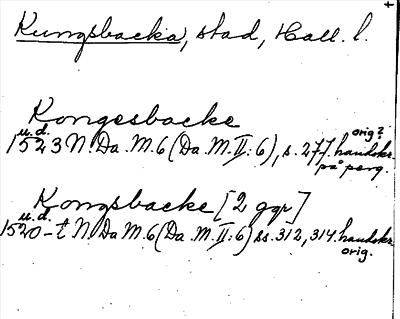 Kungsbacka, stad, Hall. l.
Kongesbacke
u.d. orig?
1523 N. Da. M. 6 (Da. M. II: 6), s. 277. handskr.
på perg.
Kongsbacke [2 ggr]
u.d.
1520-t N. Da M. 6 (Da. M. II: 6) ss. 312, 314. handskr.
orig.